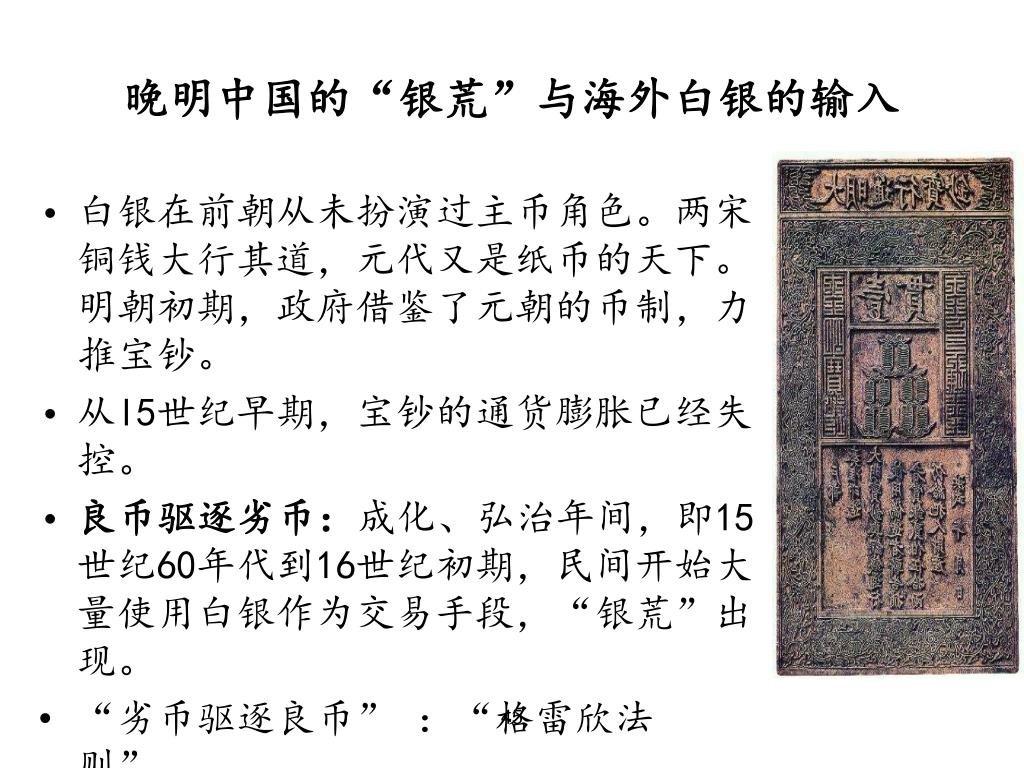 晚明中国的“银荒”与海外白银的输入
• 白银在前朝从未扮演过主币角色。两宋
铜钱大行其道，元代又是纸币的天下。
明朝初期，政府借鉴了元朝的币制，力
推宝钞。
• 从l5世纪早期，宝钞的通货膨胀已经失
控。
• 良币驱逐劣币：成化、弘治年间，即15
世纪60年代到16世纪初期，民间开始大
量使用白银作为交易手段，“银荒”出
现。
• “劣币驱逐良币” ：“格雷欣法
则”
大明通行寶鈔
壹貫